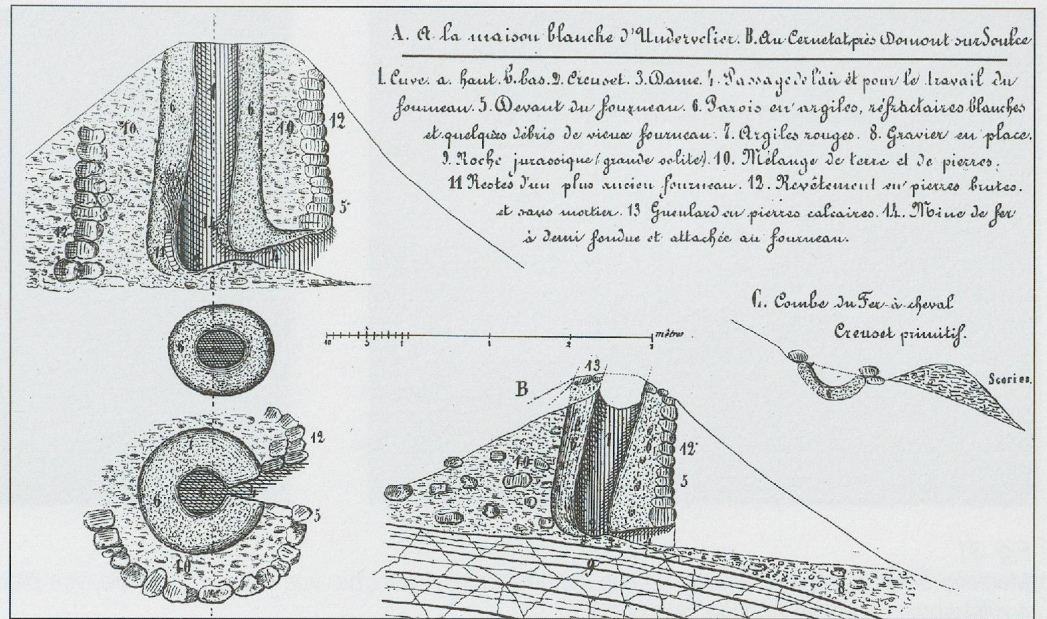 A. A la maison blanche d'Undervelier. B. Au Cernetat, près Domont sur Soulce
1. Cuve. a haut. b. bas. 2. Creuset. 3. Dame. 4. Passage de l'air et pour le travail du
fourneau. 5. Devant du fourneau. 6. Parois en argiles, réfractaires blanches
et quelques débris de vieux fourneau. 7. Argiles rouges. 8. Gravier en place.
9. Roche jurassique (grande oolite). 10. Mélange de terre et de pierres.
11 Restes d'un plus ancien fourneau. 12. Revêtement en pierres brutes.
et sans mortier. 13 Gueulard en pierres calcaires. 14. Mine de fer
à demi fondue et attachée au fourneau.
C. Combe du Fer-à-cheval
Creuset primitif.
Scories.
mètres
10 5 1 2 3
B
13
1
6 6
10 10
12
12
5
11
14
4
6
12
7
6
5
10
10
12
5
9
8